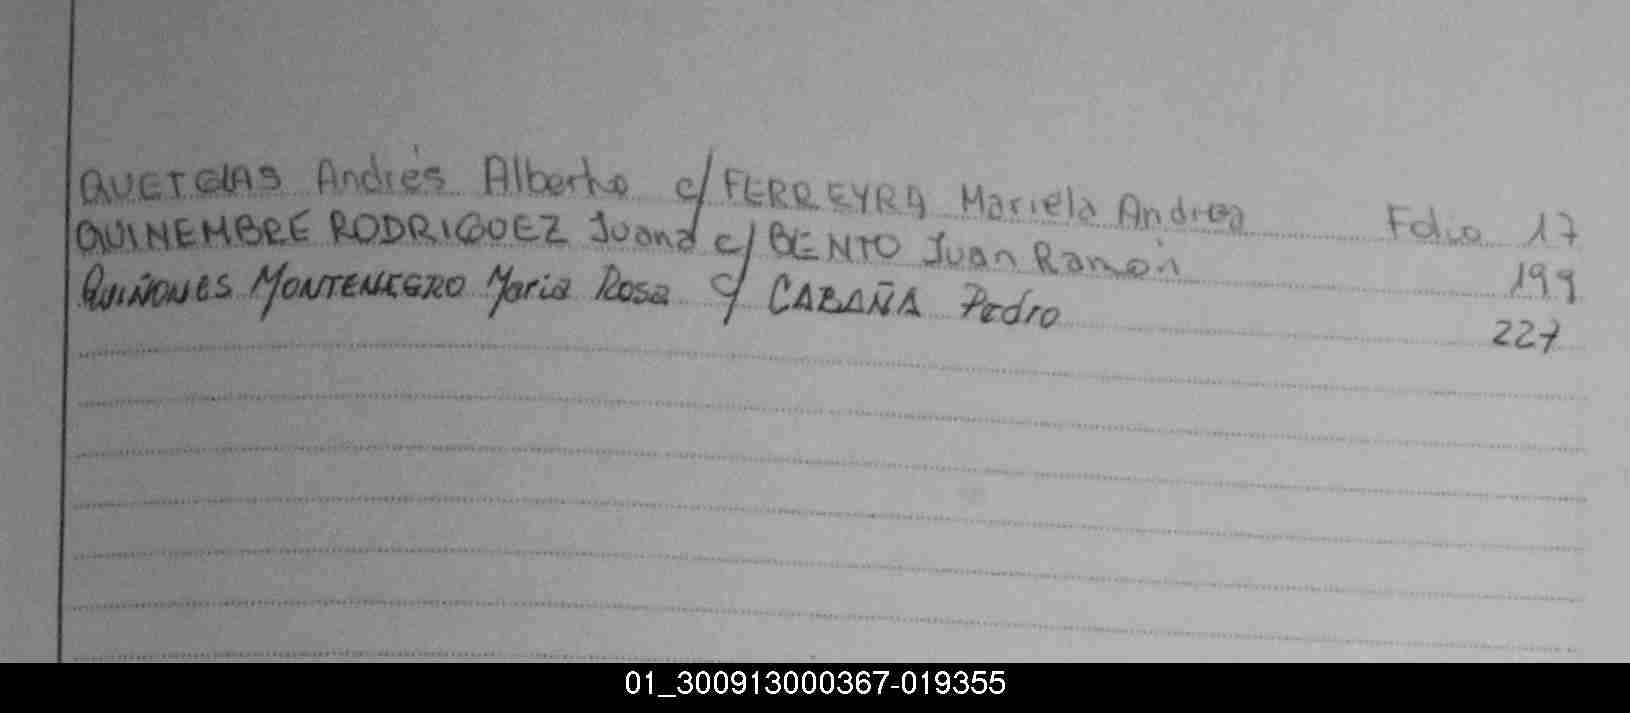 QUETGLAS Andrés Alberto c/ FERREYRA Mariela Andrea Folio 17
QUINEMBRE RODRIGUEZ Juana c/ BENTO Juan Ramón 199
QUIÑONES MONTENEGRO Maria Rosa c/ CABAÑA Pedro 227
01_300913000367-019355